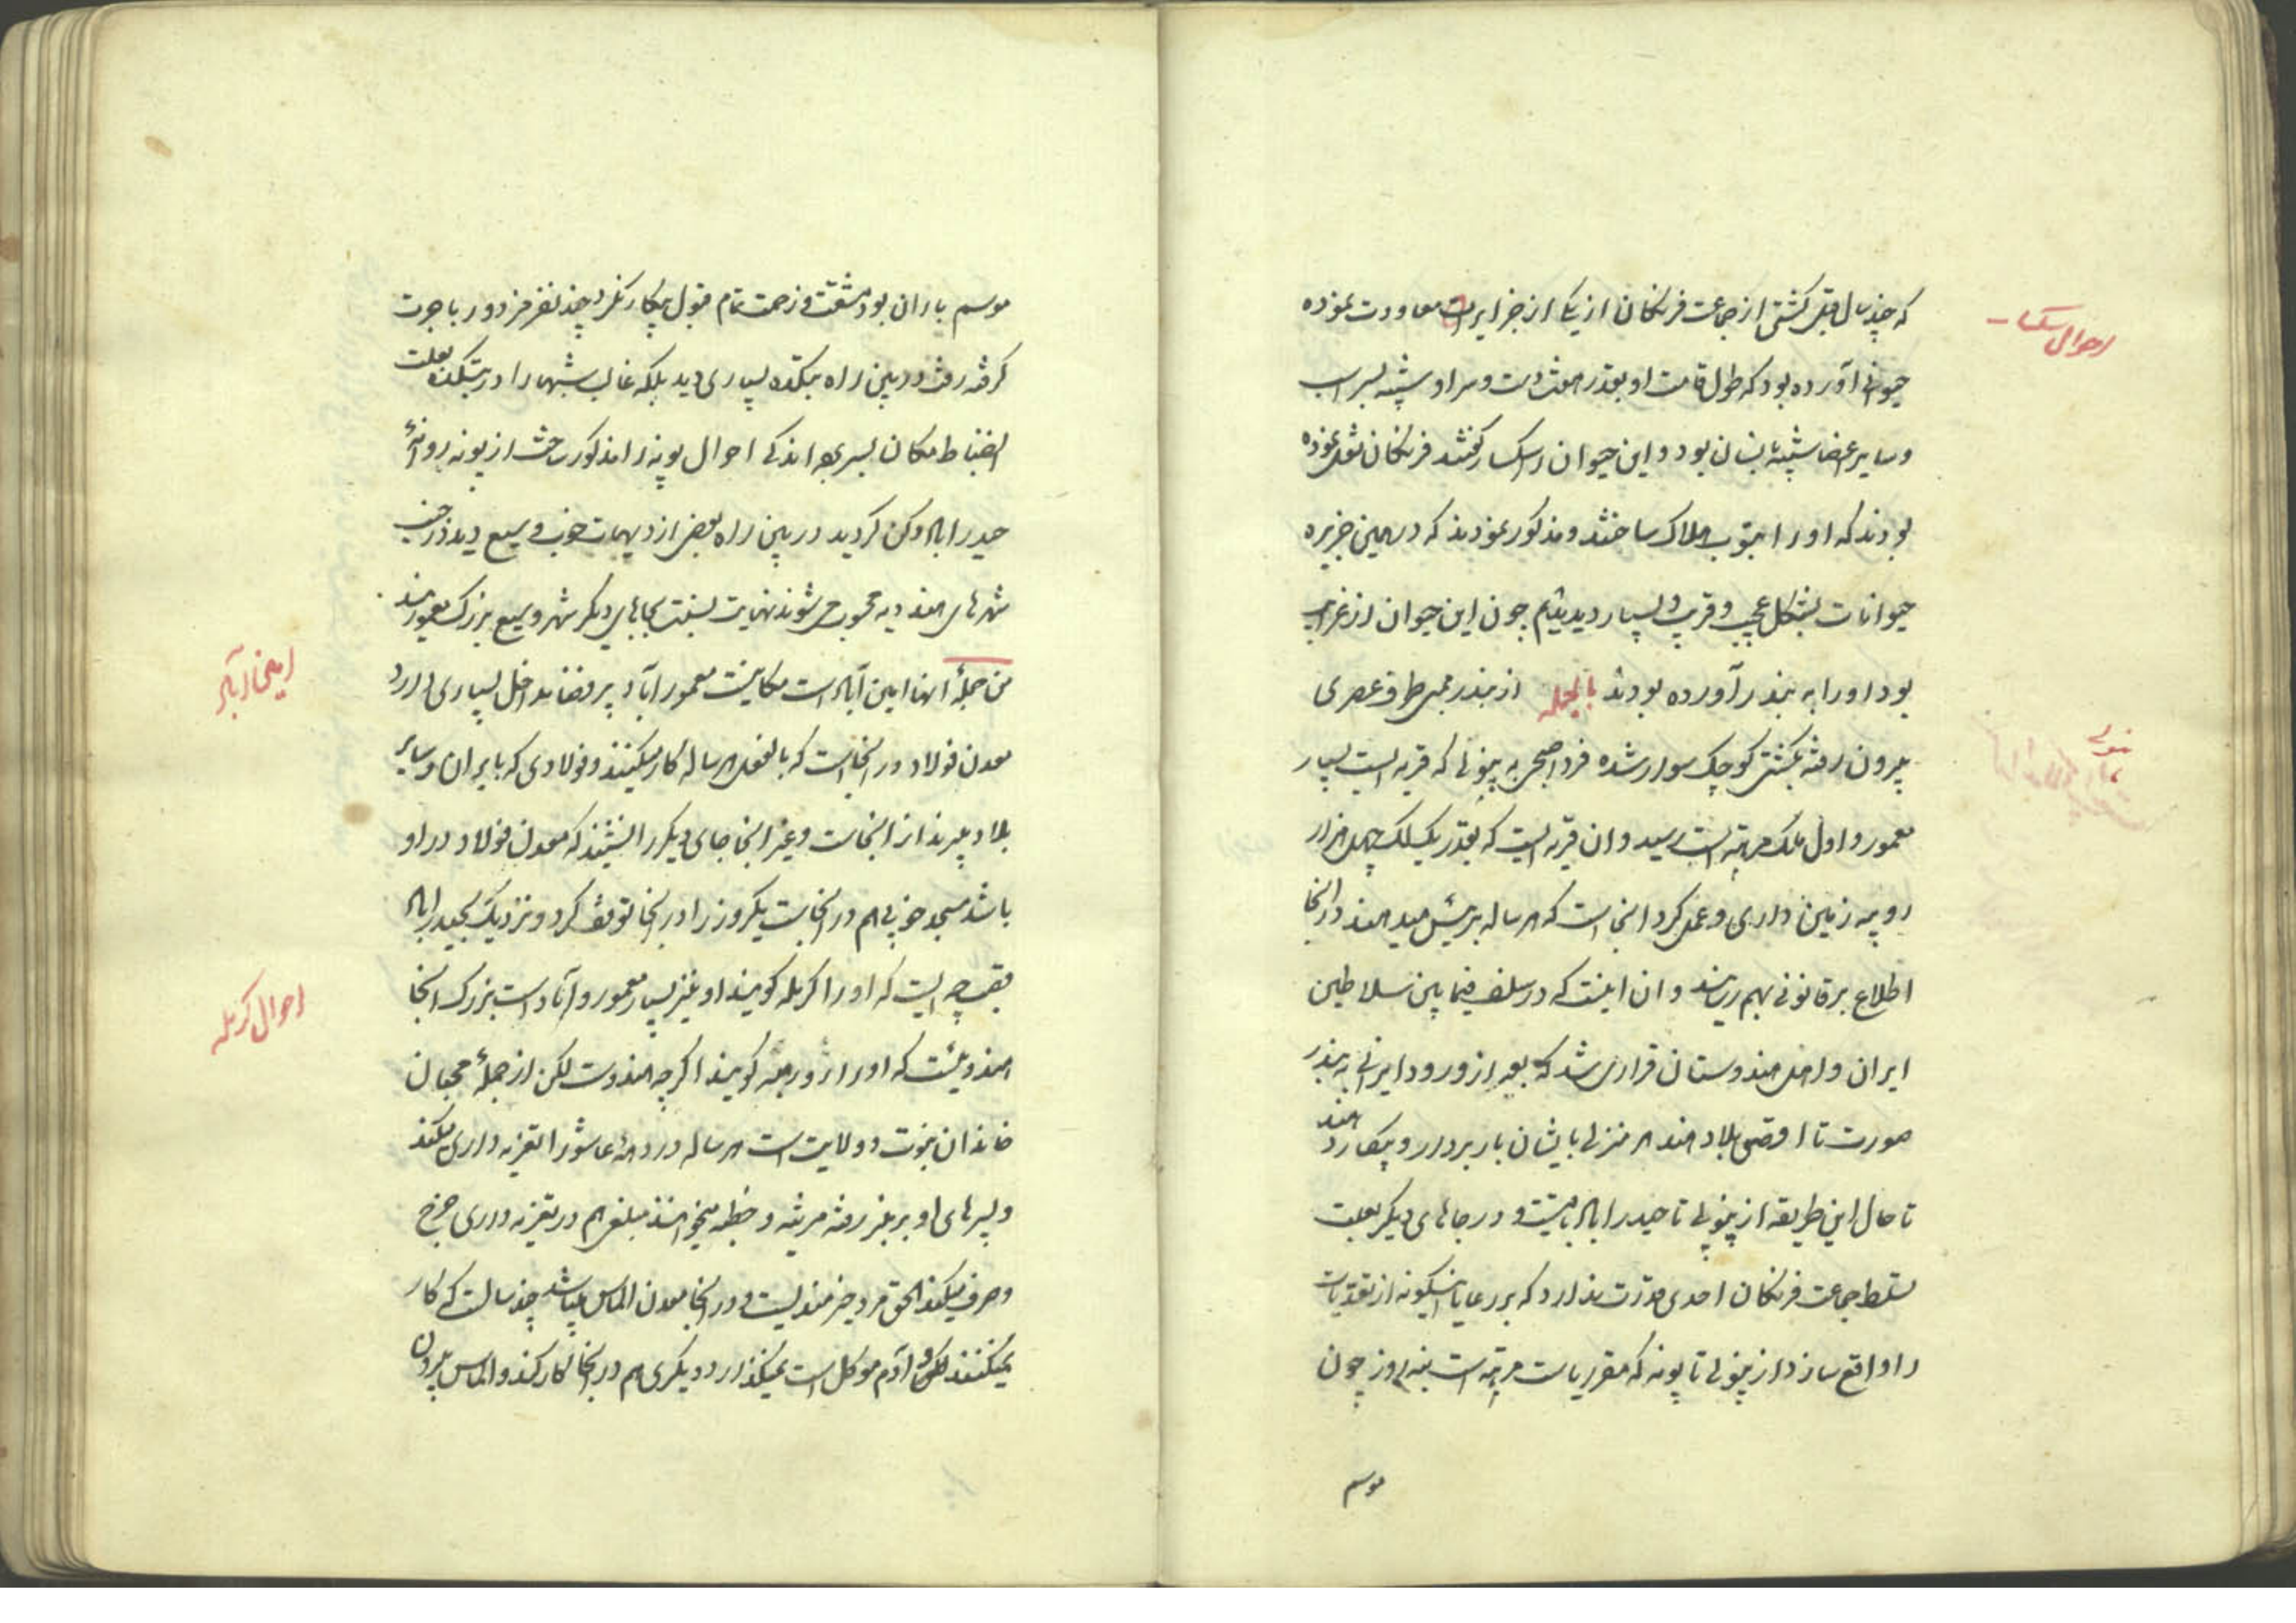 احوال سکسار
که چند سال قبل کشتی از جماعت فرنکان از یکا از جزایرات معاودت نموده
حیوانی آورده بود که طول قامت او بقدر هفت دست و سر او شبیه بسر اسب
و سایر اعضا شبیه بانسان بود و این حیوان را سکسار کفتند فرنکان نقل نموده
بودند که او را بتوپ هلاک ساختند و مذکور نمودند که در همین جزیره
حیوانات بشکل عجیب و غریب بسیار دیدیم چون این حیوان از غرایب
بود او را به بندر آورده بودند بالجمله از بندر ممبی طرف عصری
بیرون رفته بکشتی کوچک سوار شده فردا صبحی به پنولی که قریه ایست بسیار
معمور و اول ملک مرهته است رسید و ان قریه ایست که بقدر یک لک چهل هزار
روپیه زمین داری و عمل کرد انجاست که هر ساله به پیش میدهند در انجا
اطلاع بر قانونی بهم رسانید و ان اینست که در سلف فیما بین سلاطین
ایران و اهل هندوستان قراری شد که بعد از ورود ایرانی به بندر
صورت تا اقصی بلاد هند هر منزلی بایشان باربردار و بیکار دهند
تا حال این طریقه از پنولی تا حیدراباد باقیست و در جاهای دیکر بعلت
تسلط جماعت فرنکان احدی قدرت ندارد که بر رعایا اینکونه از تعدیات
را واقع سازد از پنولی تا پونه که مقر ریاست مرهته است سه روز چون
موسم
موسم باران بود بمشقت و زحمت تمام قبول بیکار نکرد چند نفر مزدور باجرت
کرفته رفت در بین راه بتکده بسیاری دید بلکه غالب شبها را در بتکده بعلت
انضباط مکان بسر برد اندکی احوال پونه را مذکور ساخت از پونه روانهٔ
حیدراباد دکن کردید در بین راه بعضی از دیهات خوب و وسیع دید در جنب
شهرهای هند دیه محسوب می شوند نهایت نسبت بجاهای دیکر شهر وسیع بزرک معمورند
من جملهٔ انها ایمن آباد است مکانیست معمور آباد پر فضا مداخل بسیاری دارد
ایمن آباد
معدن فولاد در انجاست که بالفعل هر ساله کار میکنند و فولادی که بایران و سایر
بلاد میبرند از انجاست و غیر انجا جای دیکر را نشنیند که معدن فولاد در او
باشد مسجد خوبی هم در انجاست یکروز را در انجا توقف کرد و نزدیک بحیدراباد
قصبچه ایست که او را کربله کویند او نیز بسیار معمور و آباد است بزرک انجا
احوال کربله
هندوئیست که او را کویند اکرچه هندوست لکن از جملهٔ محبان
خاندان نبوت و ولایت است هر ساله در دههٔ عاشورا تعزیه داری میکند
و پسرهای او بر منبر رفته مرثیه و خطبه میخوانند مبلغی هم در تعزیه داری خرج
و صرف میکند الحق مرد خیرمندیست و در انجا معدن الماس میباشد چند سالست که کار
نمیکنند لکن آدم موکل است نمیکذارد دیکری هم در انجا کار کند و الماس بیرون